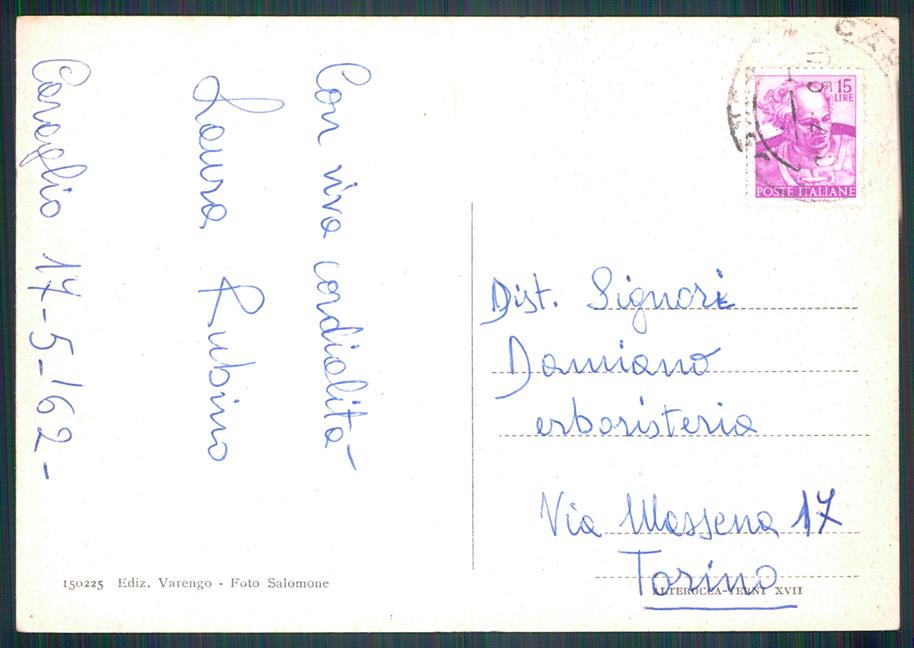 Caraglio 17-5-'62-
Con viva cordialità
Laura Rubino
15
LIRE
POSTE ITALIANE
Dist. Signori
Damiano
erboristeria
Via Massena 17
Torino
150225 Ediz. Varengo - Foto Salomone
ALTEROCCA-TERNI XVII